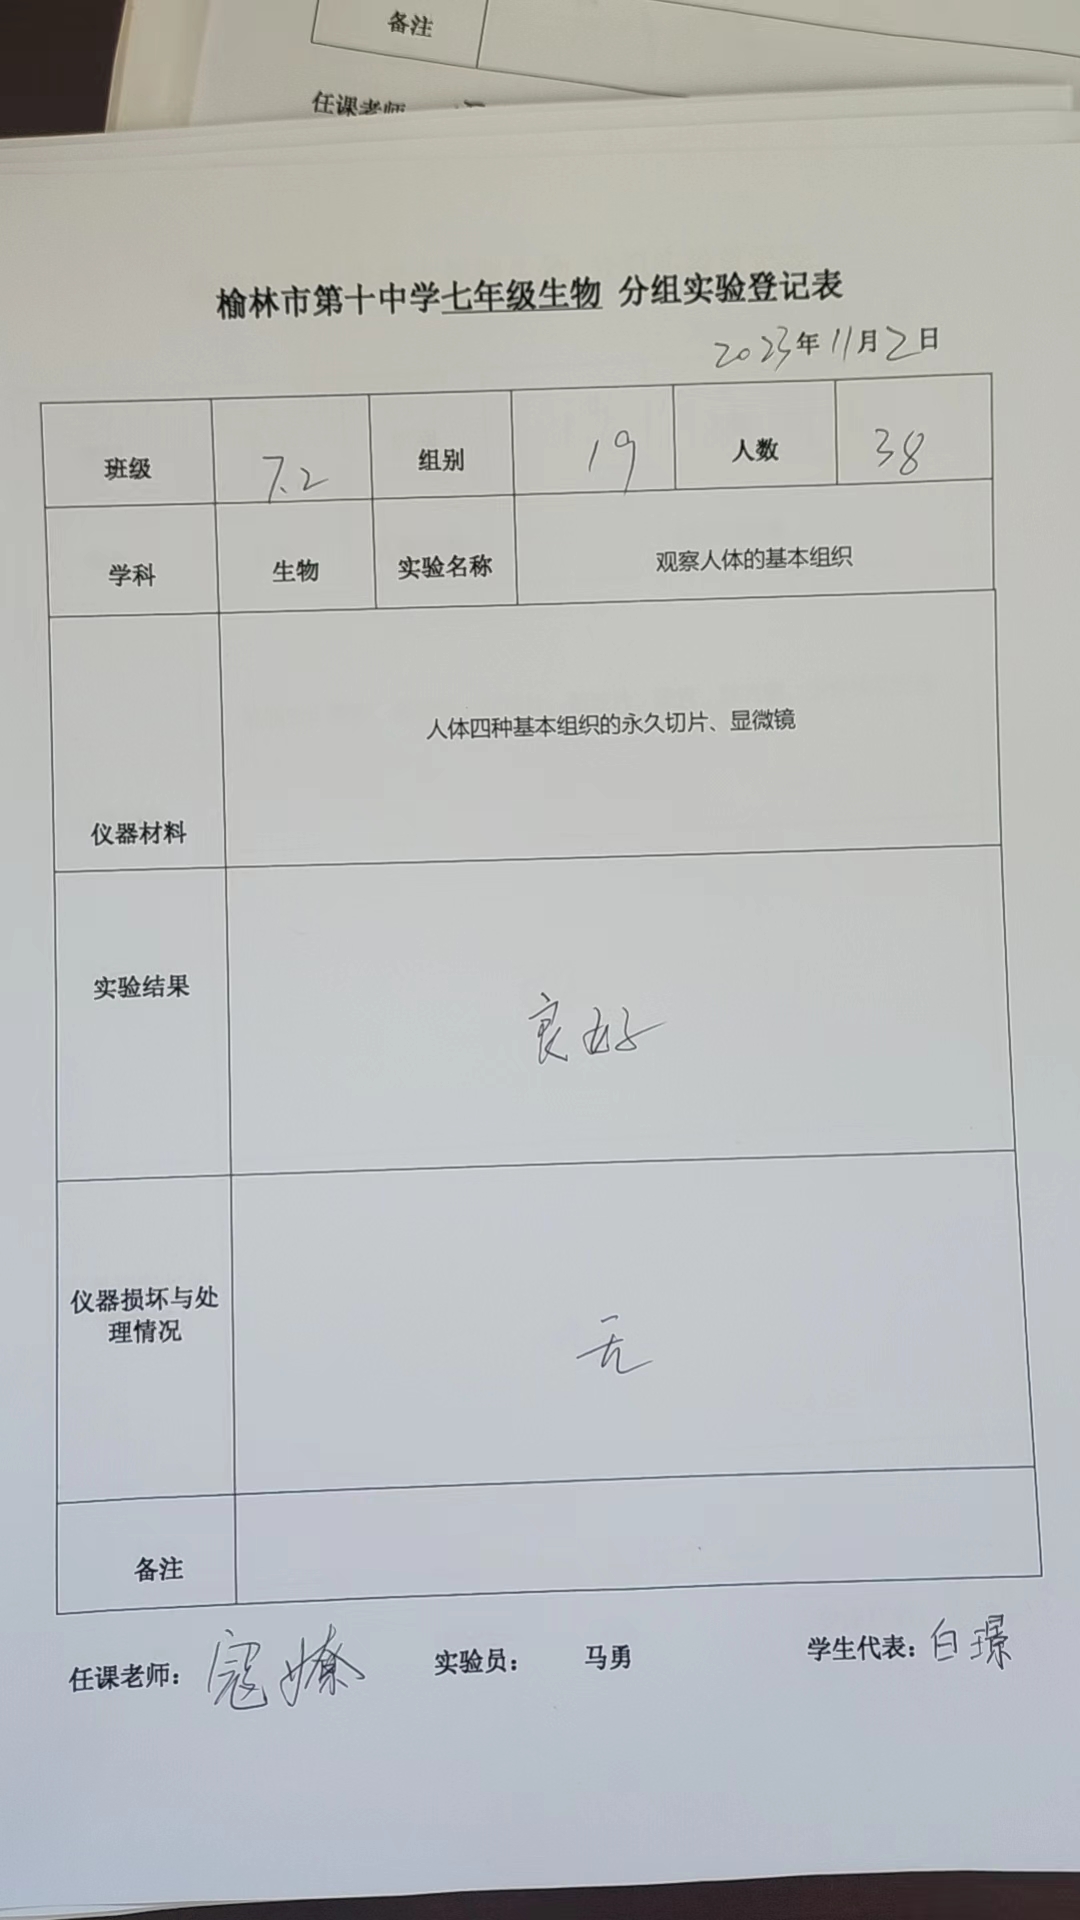 备注
任课老师
榆林市第十中学七年级生物 分组实验登记表
2023年11月2日
班级 7.2 组别 19 人数 38
学科 生物 实验名称 观察人体的基本组织
人体四种基本组织的永久切片、显微镜
仪器材料
实验结果
良好
仪器损坏与处
理情况
无
备注
任课老师： 寇嫽 实验员： 马勇 学生代表：白璟